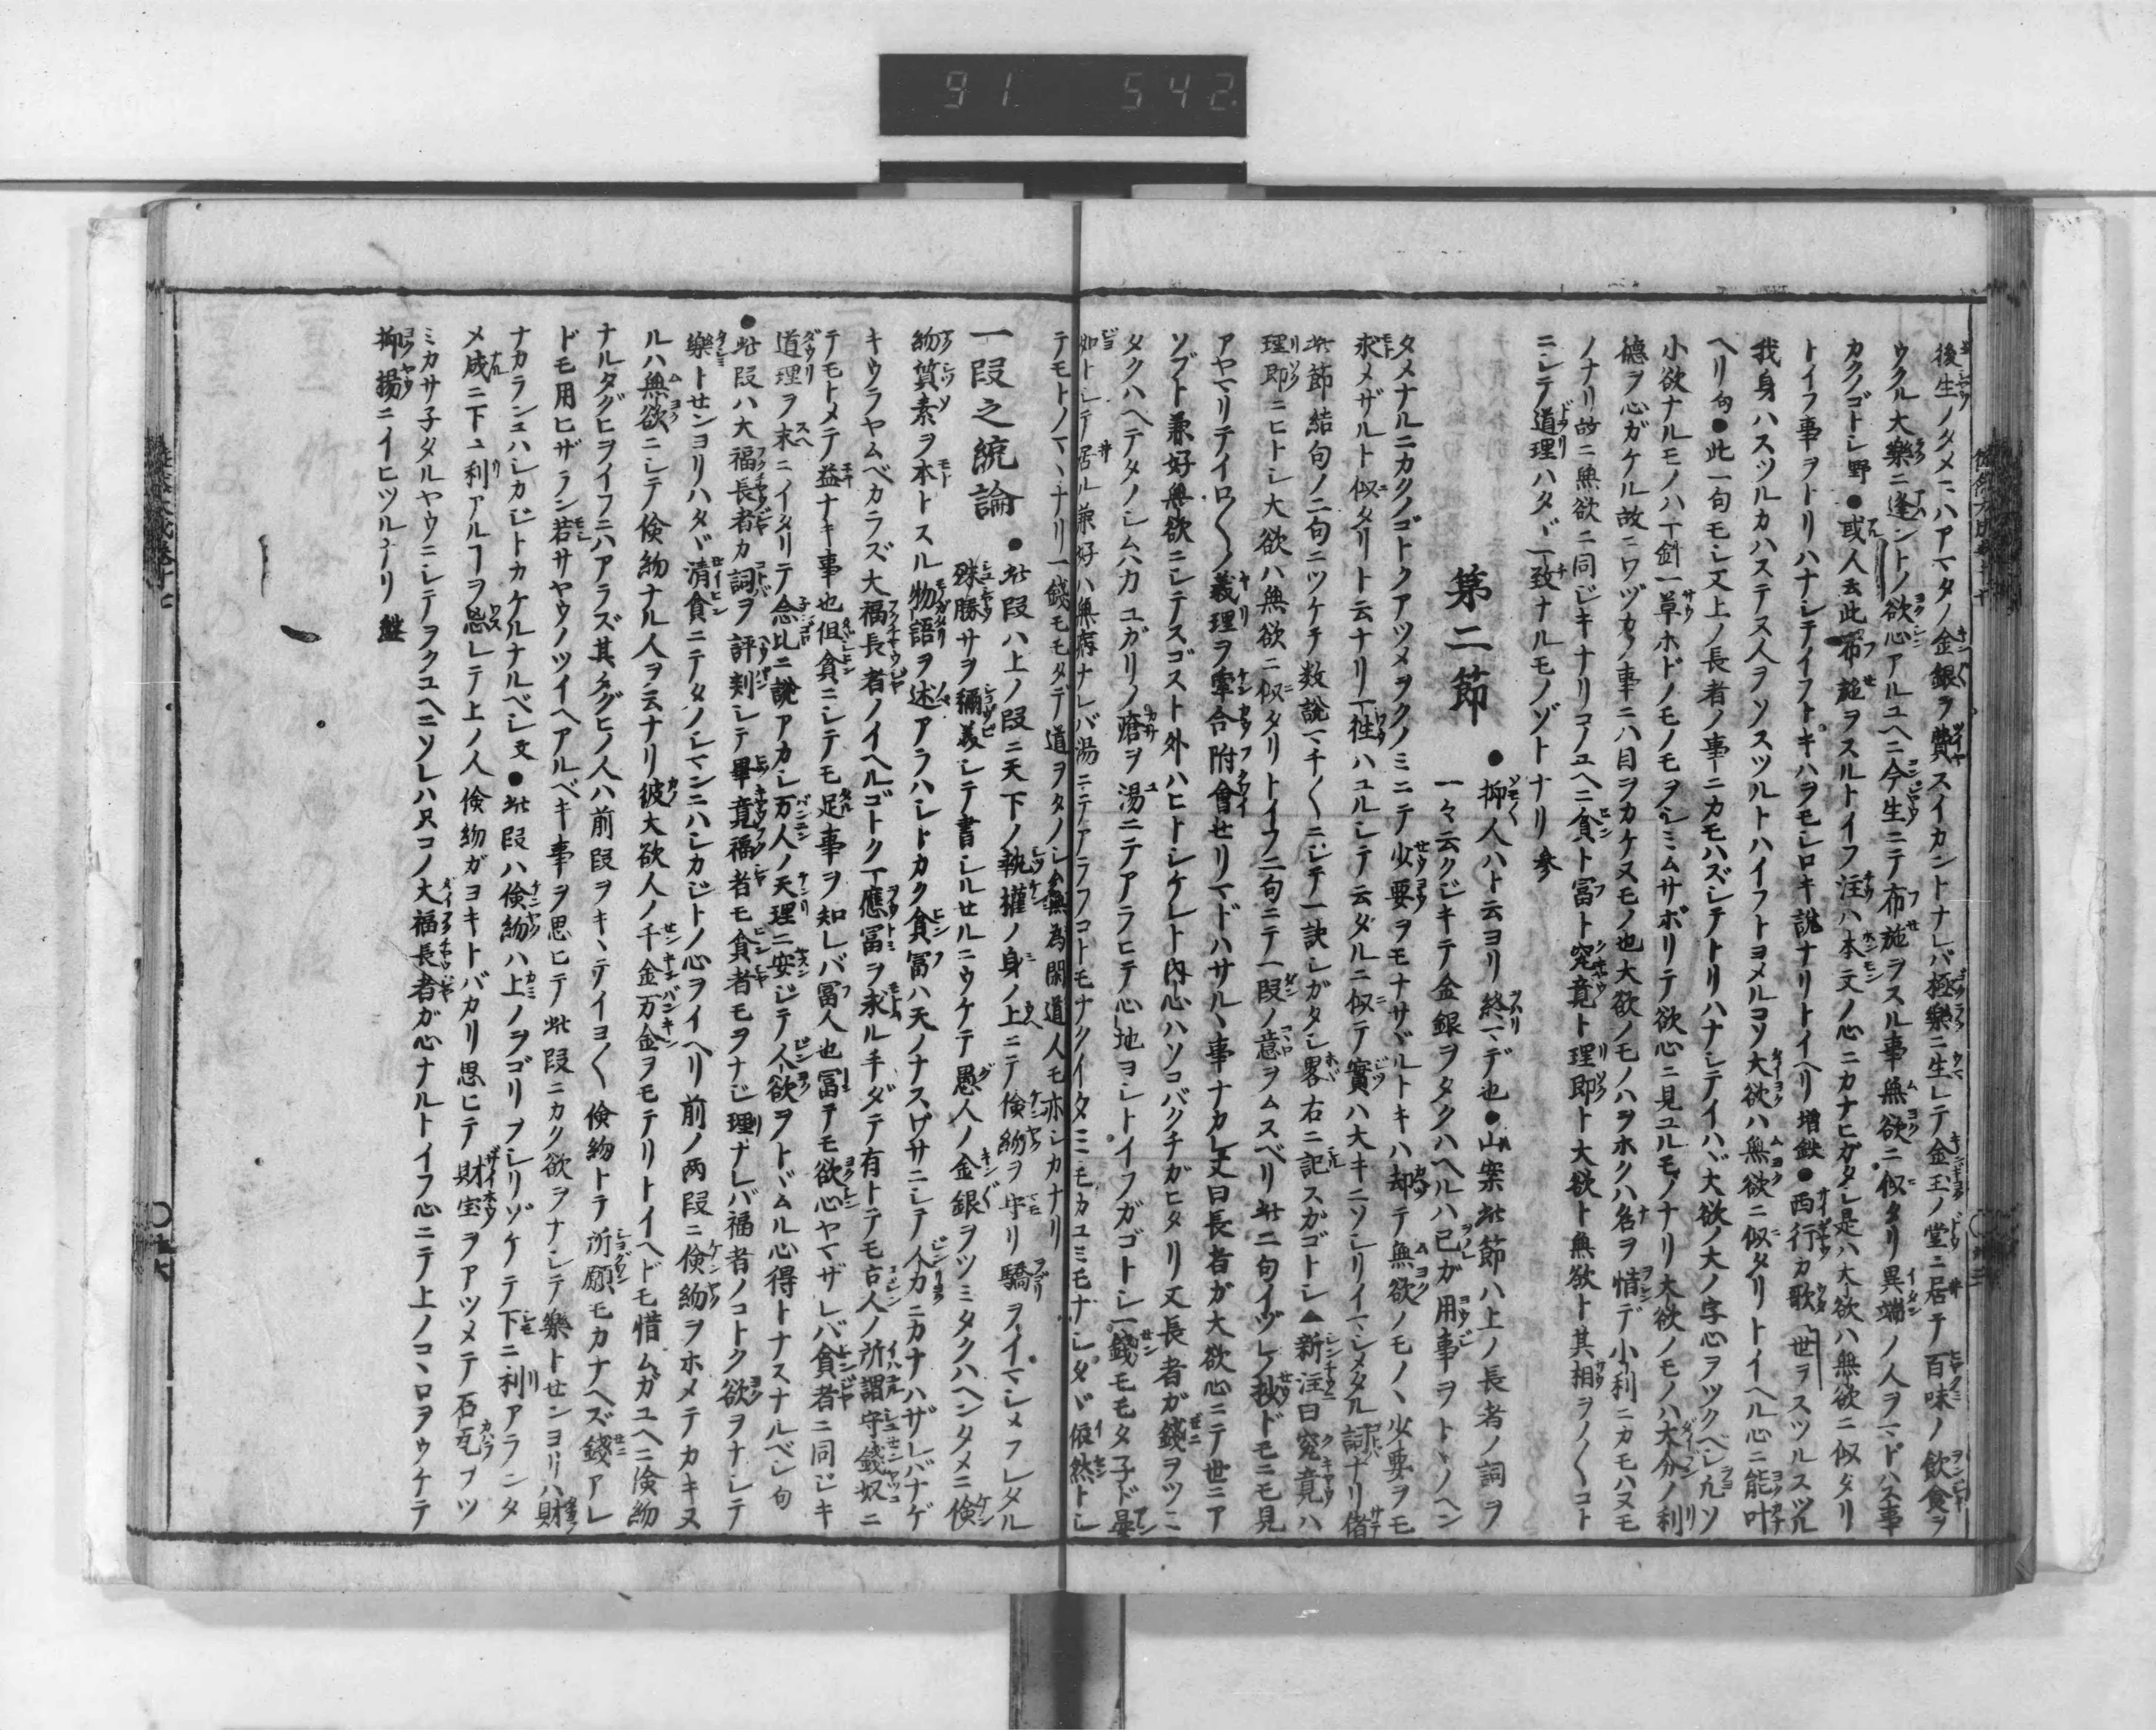 91 542
後生ノタメニハアマタノ金銀ヲ費スイカントナレバ極樂ニ生レテ金玉ノ堂ニ居テ百味ノ飲食ヲ
ウクル大樂ニ逢ントノ欲心アルユヘニ今生ニテ布施ヲスル事無欲ニ似タリ異端ノ人ヲマドハス事
カクノゴトシ野●或人云此布施ヲスルトイフ注ハ本文ノ心ニカナヒガタシ是ハ大欲ハ無欲ニ似タリ
トイフ事ヲトリハナシテイフトキハヲモシロキ説ナリトイヘリ増鉄●西行カ歌「世ヲスツルスツル
我身ハスツルカハステヌ人ヲソスツルトハイフトヨメルコソ大欲ハ無欲ニ似タリトイヘル心ニ能叶
ヘリ句●此一句モシ又上ノ長者ノ事ニカモハズシテトリハナシテイハヾ大欲ノ大ノ字心ヲツクベシ凡ソ
小欲ナルモノハ一針一草ホドノモノモヲシミムサボリテ欲心ニ見ユルモノナリ大欲ノモノハ大分ノ利
徳ヲ心ガケル故ニワヅカノ事ニハ目ヲカケヌモノ也大欲ノモノハヲホクハ名ヲ惜デ小利ニカモハヌモ
ノナリ故ニ無欲ニ同ジキナリコノユヘニ貪ト冨ト究竟ト理即ト大欲ト無欲ト其相ヲノ〱コト
ニシテ道理ハタヾ一致ナルモノゾトナリ参
第二節 ●抑人ハト云ヨリ終マデ也●山案此節ハ上ノ長者ノ詞ヲ
一々云クジキテ金銀ヲタクハヘルハ已ガ用事ヲトヽノヘン
タメナルニカクノゴトクアツメヲクノミニテ少要ヲモナサヾルトキハ却テ無欲ノモノヽ少要ヲモ
求メザルト似タリト云ナリ一往ハユルシテ云ダルニ似テ實ハ大キニソシリイマシメタル詞ナリ偖
此節結句ノ二句ニツケテ数説マチ〱ニシテ一訣シガタシ畧右ニ記スガゴトシ▲新注曰究竟ハ
理即ニヒトシ大欲ハ無欲ニ似タリトイフ二句ニテ一段ノ意ヲムスベリ此二句イヅレノ抄ドモニモ見
アヤマリテイロ〱ノ義理ヲ牽合附會セリマドハサルヽ事ナカレ又曰長者ガ大欲心ニテ世ニア
ソブト兼好無欲ニシテスゴスト外ハヒトシケレト内心ハソコバクチガヒタリ又長者ガ錢ヲツミ
タクハヘテタノシムハカユガリノ瘡ヲ湯ニテアラヒテ心地ヨシトイフガゴトシ一錢モモタ子ド晏
如トシテ居ル兼好ハ無病ナレバ湯ニテアラフコトモナクイタミモカユミモナシタヾ依然トシ
テモトノマヽナリ一錢モモタデ道ヲタノシム無為閑道人モ亦シカナリ
一段之統論 ●此段ハ上ノ段ニ天下ノ執權ノ身ノ上ニテ倹約ヲ守リ驕ヲイマシメフレタル
殊勝サヲ稱美シテ書シルセルニウケテ愚人ノ金銀ヲツミタクハヘンタメニ倹
約質素ヲ本トスル物語ヲ述アラハレトカク貪冨ハ天ノナスワザニシテ人力ニカナハザレバナゲ
キウラヤムベカラズ大福長者ノイヘルゴトク一應冨ヲ求ル手ダテ有トテモ古人ノ所謂守錢奴ニ
テモトメテ益ナキ事也但貪ニシテモ足事ヲ知レバ冨人也冨テモ欲心ヤマザレバ貪者ニ同ジキ
道理ヲ末ニイタリテ念比ニ說アカシ万人ノ天理ニ安ジテ人欲ヲトヾムル心得トナスナルベシ句
●此段ハ大福長者カ詞ヲ評判シテ畢竟福者モ貪者モヲナジ理ナレバ福者ノコトク欲ヲナシテ
樂トセンヨリハタヾ清貪ニテタノシマンニハシカジトノ心ヲイヘリ前ノ两段ニ倹約ヲホメテカキヌ
ルハ無欲ニシテ倹約ナル人ヲ云ナリ彼大欲人ノ千金万金ヲモテリトイヘドモ惜ムガユヘニ倹約
ナルタグヒヲイフニハアラズ其タグヒノ人ハ前段ヲキヽテイヨ〱倹約トテ所願モカナヘズ錢アレ
ドモ用ヒザラン若サヤウノツイヘアルベキ事ヲ思ヒテ此段ニカク欲ヲナシテ樂トセンヨリハ財
ナカランニハシカジトカケルナルベシ文●此段ハ倹約ハ上ノヲゴリヲシリゾケテ下ニ利アランタ
メ成ニ下ニ利アルヿヲ忘レテ上ノ人倹約ガヨキトバカリ思ヒテ財宝ヲアツメテ石瓦ヲツ
ミカサ子タルヤウニシテヲクユヘニソレハ只コノ大福長者ガ心ナルトイフ心ニテ上ノコヽロヲウケテ
抑揚ニイヒツルナリ盤